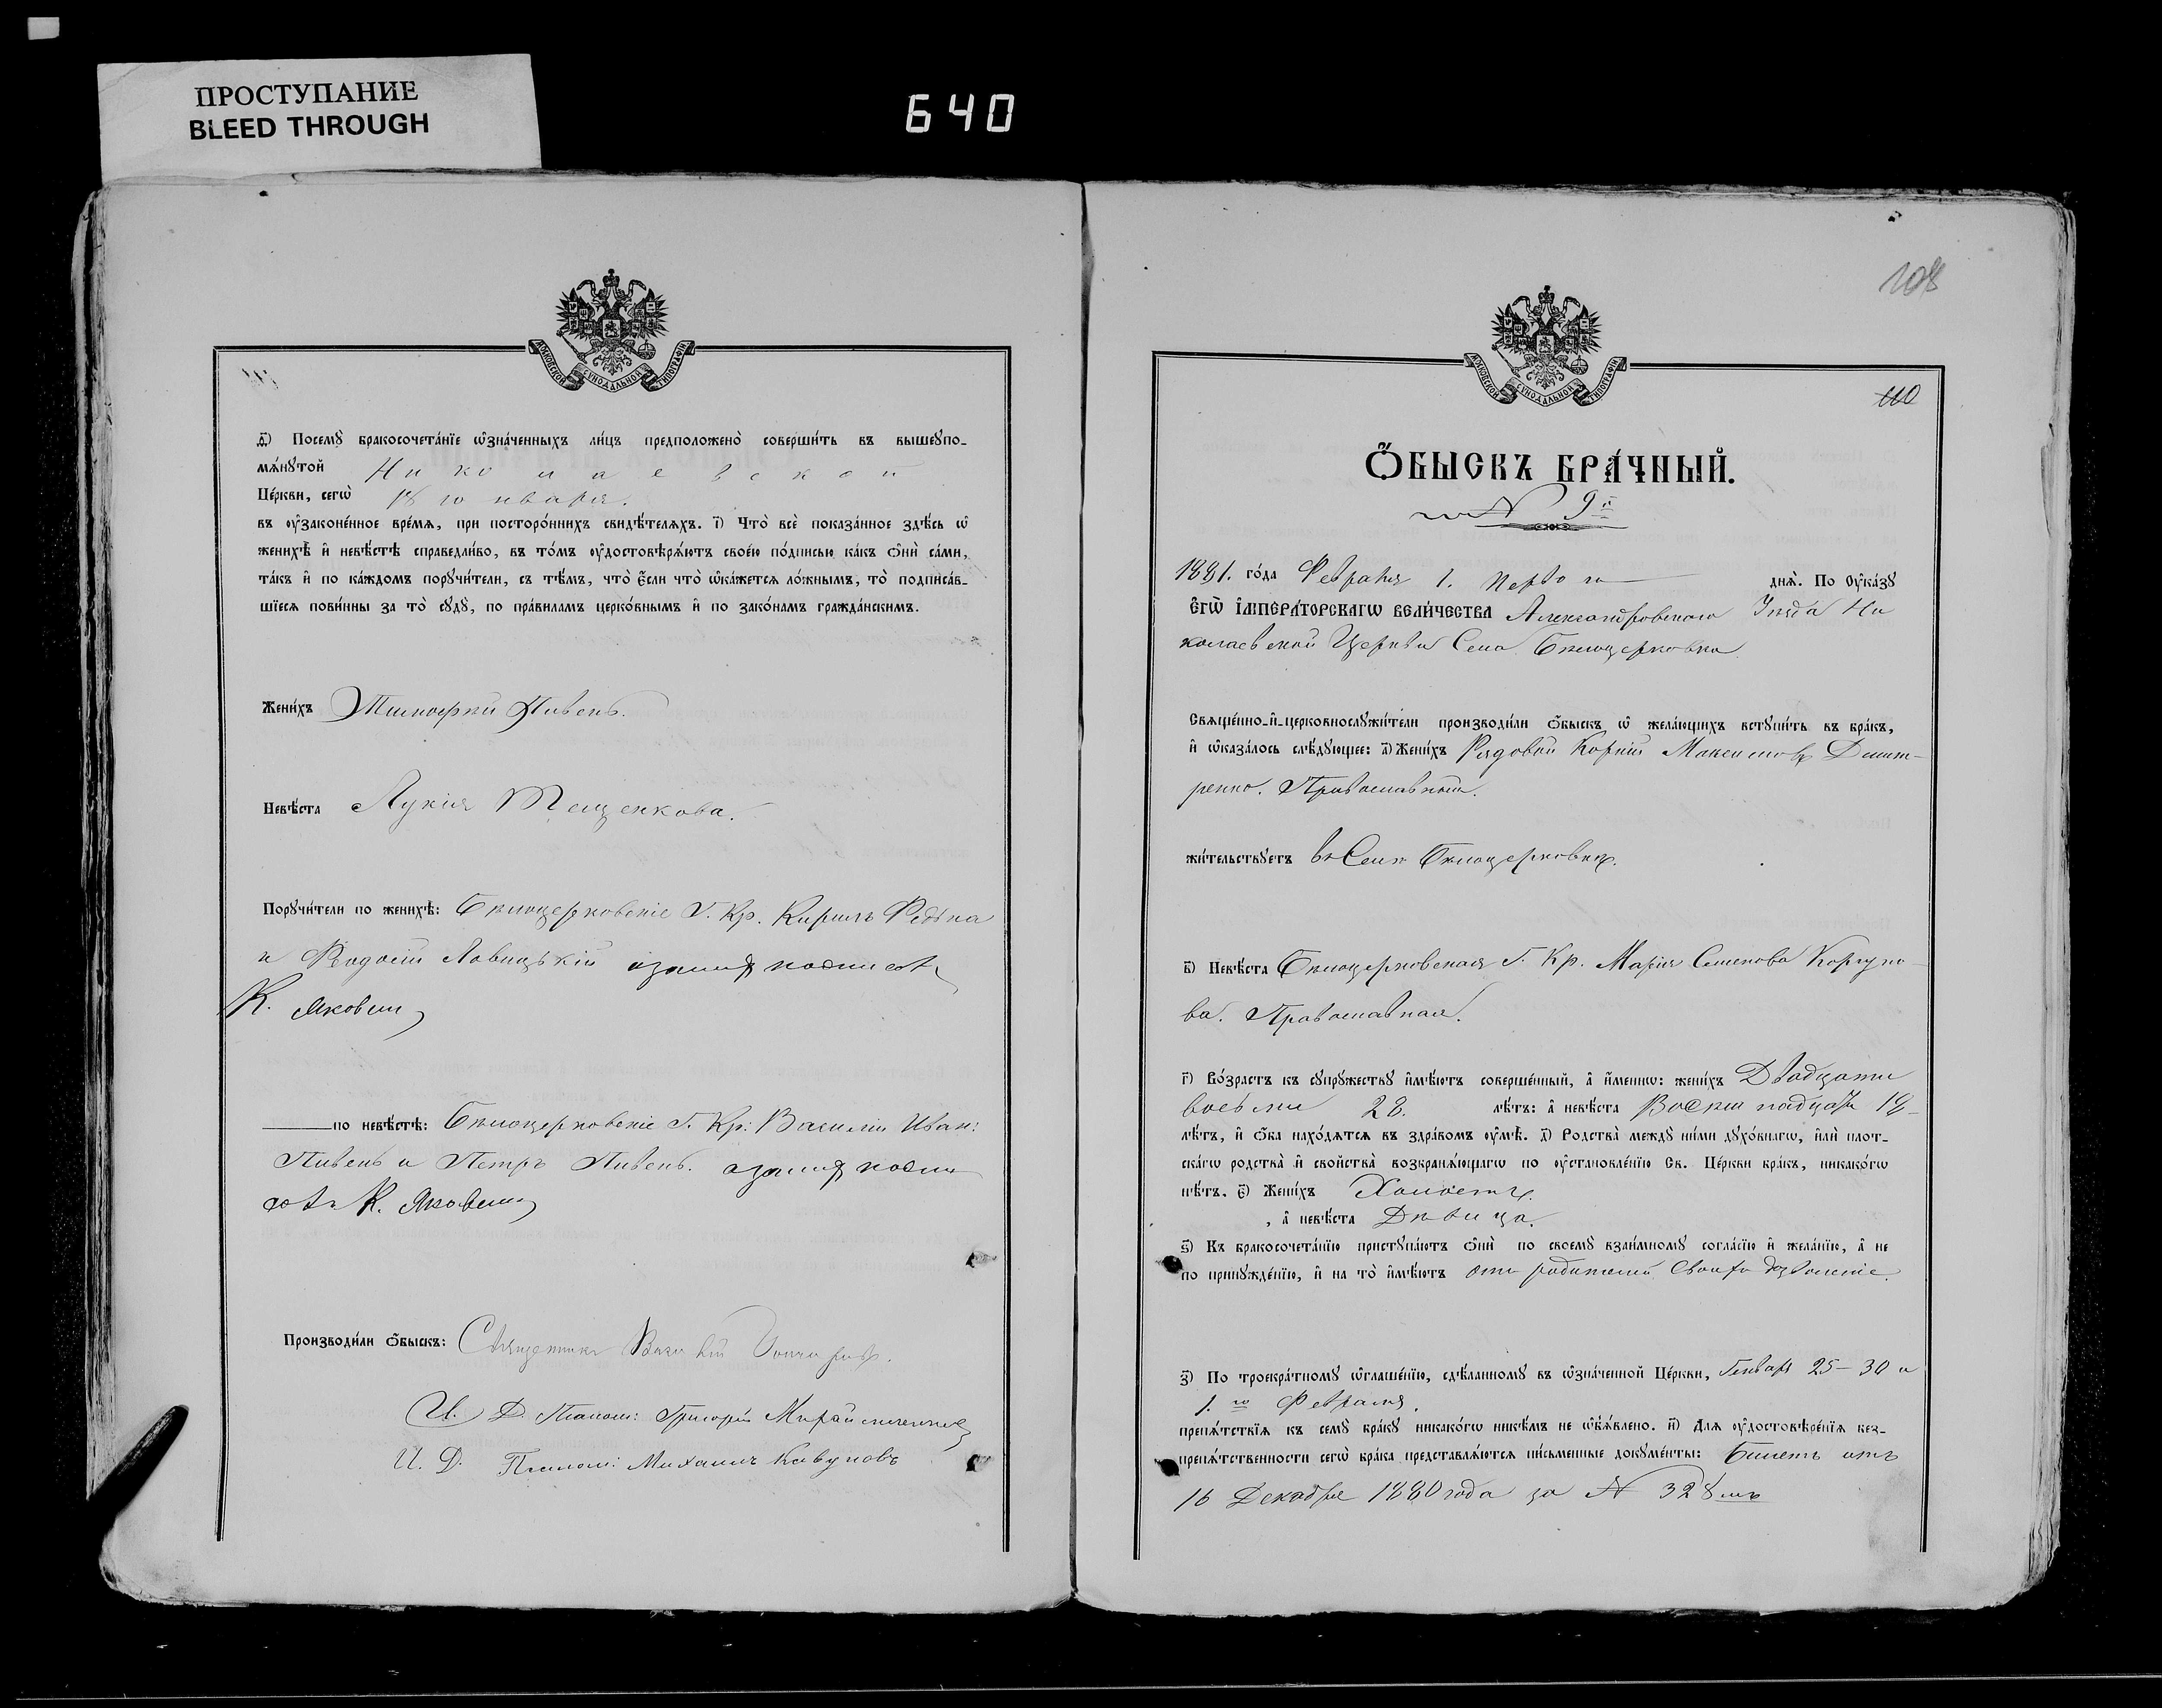 ПРОСТУПАНИЕ
BLEED THROUGH
640
МОСКОВСКОЙ СѴНОДАЛЬНОЙ ТИПОГРАФІИ
ѳ҃) Посемꙋ̀ бракосочета́нїе ѡ҆зна́ченныхъ ли́цъ предположено̀ соверши́ть въ вышеꙋпо-
мѧ́нꙋтой Николаевской
Це́ркви, сегѡ̀ 18 го января.
въ ᲂу҆законе́нное вре́мѧ, при посторо́ннихъ свидѣ́телѧхъ. і҃) Что̀ всѐ пока́занное здѣ́сь ѡ҆
женихѣ̀ и҆ невѣ́стѣ справедли́во, въ то́мъ ᲂу҆достовѣрѧ́ютъ свое́ю по́дписью ка́къ ѻ҆нѝ са́ми,
та́къ и҆ по ка́ждомъ порꙋчи́тели, съ тѣ́мъ, что̀ є҆́сли что̀ ѡ҆ка́жетсѧ ло́жнымъ, то̀ подписа́в-
шїесѧ пови́нны за то̀ сꙋдꙋ̀, по пра́виламъ церко́внымъ и҆ по зако́намъ гражда́нскимъ.
Жени́хъ Тимофей Пивень.
Невѣ́ста Лукія Тещенкова.
Порꙋчи́тели по женихѣ̀: Бѣлоцерковскіе Г. Кр. Кирилъ Редька
и Феодосій Лавицькій
К. Яковин
по невѣ́стѣ: Бѣлоцерковскіе Г. Кр: Василій Иван:
Пивень и Петръ Пивень.
К. Яковин
Производи́ли ѻ҆́быскъ: Священникъ
И. Д. Псалом: Григорій
И. Д. Псалом: Михаилъ Кавуновъ
108
110
МОСКОВСКОЙ СѴНОДАЛЬНОЙ ТИПОГРАФІИ
Ѻ҆́БЫСКЪ БРА́ЧНЫЙ.
№ 9й
1881. го́да Февраля 1. перваго днѧ̀. По Оу҆ка́зꙋ
Є҆ГѠ̀ І҆МПЕРА́ТОРСКАГѠ ВЕЛИ́ЧЕСТВА Александровскаго Уѣзда Ни
колаевской Церкви Села Бѣлоцерковка
Свѧще́нно-и҆-церковнослꙋжи́тели производи́ли ѻ҆́быскъ ѡ҆ жела́ющихъ встꙋпи́ть въ бра́къ,
и҆ ѡ҆каза́лось слѣ́дꙋющее: а҃) Жени́хъ Рядовой Корній Максимовъ Дмит-
ренко. Православный.
жи́тельствꙋетъ въ Селѣ Бѣлоцерковкѣ.
в҃) Невѣ́ста Бѣлоцерковская Г. Кр. Марія Семенова
ва. Православная.
г҃) Во́зрастъ къ сꙋпрꙋ́жествꙋ и҆мѣ́ютъ соверше́нный, а҆ и҆́меннѡ: жени́хъ Двадцати
восьми 28. лѣ́тъ: а҆ невѣ́ста Восемнадцати 18
лѣ́тъ, и҆ ѻ҆́ба нахо́дѧтсѧ въ здра́вомъ ᲂу҆мѣ̀. д҃) Родства̀ междꙋ̀ ни́ми дꙋхо́внагѡ, и҆лѝ плот-
ска́гѡ родства̀ и҆ сво́йства̀ возбранѧ́ющагѡ по ᲂу҆становле́нїю Св. Це́ркви бра́къ, никако́гѡ
нѣ́тъ. є҃) Жени́хъ Холостъ.
, а҆ невѣ́ста Дѣвица.
ѕ҃) Къ бракосочета́нїю пристꙋпа́ютъ ѻ҆нѝ по своемꙋ̀ взаи́мномꙋ согла́сїю и҆ жела́нїю, а҆ не
по принꙋжде́нїю, и҆ на то̀ и҆мѣ́ютъ отъ родителей своихъ дозволеніе.
з҃) По троекра́тномꙋ ѡ҆глаше́нїю, сдѣ́ланномꙋ въ ѡ҆зна́ченной Це́ркви, Генваря 25 – 30 и
1. го Февраля.
препѧ́тствїѧ къ семꙋ̀ бра́кꙋ никако́гѡ никѣ́мъ не ѡ҆б̾ѧ́влено. и҃) Длѧ ᲂу҆достовѣре́нїѧ без-
препѧ́тственности сегѡ̀ бра́ка представлѧ́ютсѧ пи́сьменные докꙋме́нты: Билетъ отъ
16 Декабря 1880 года за № 328 мъ